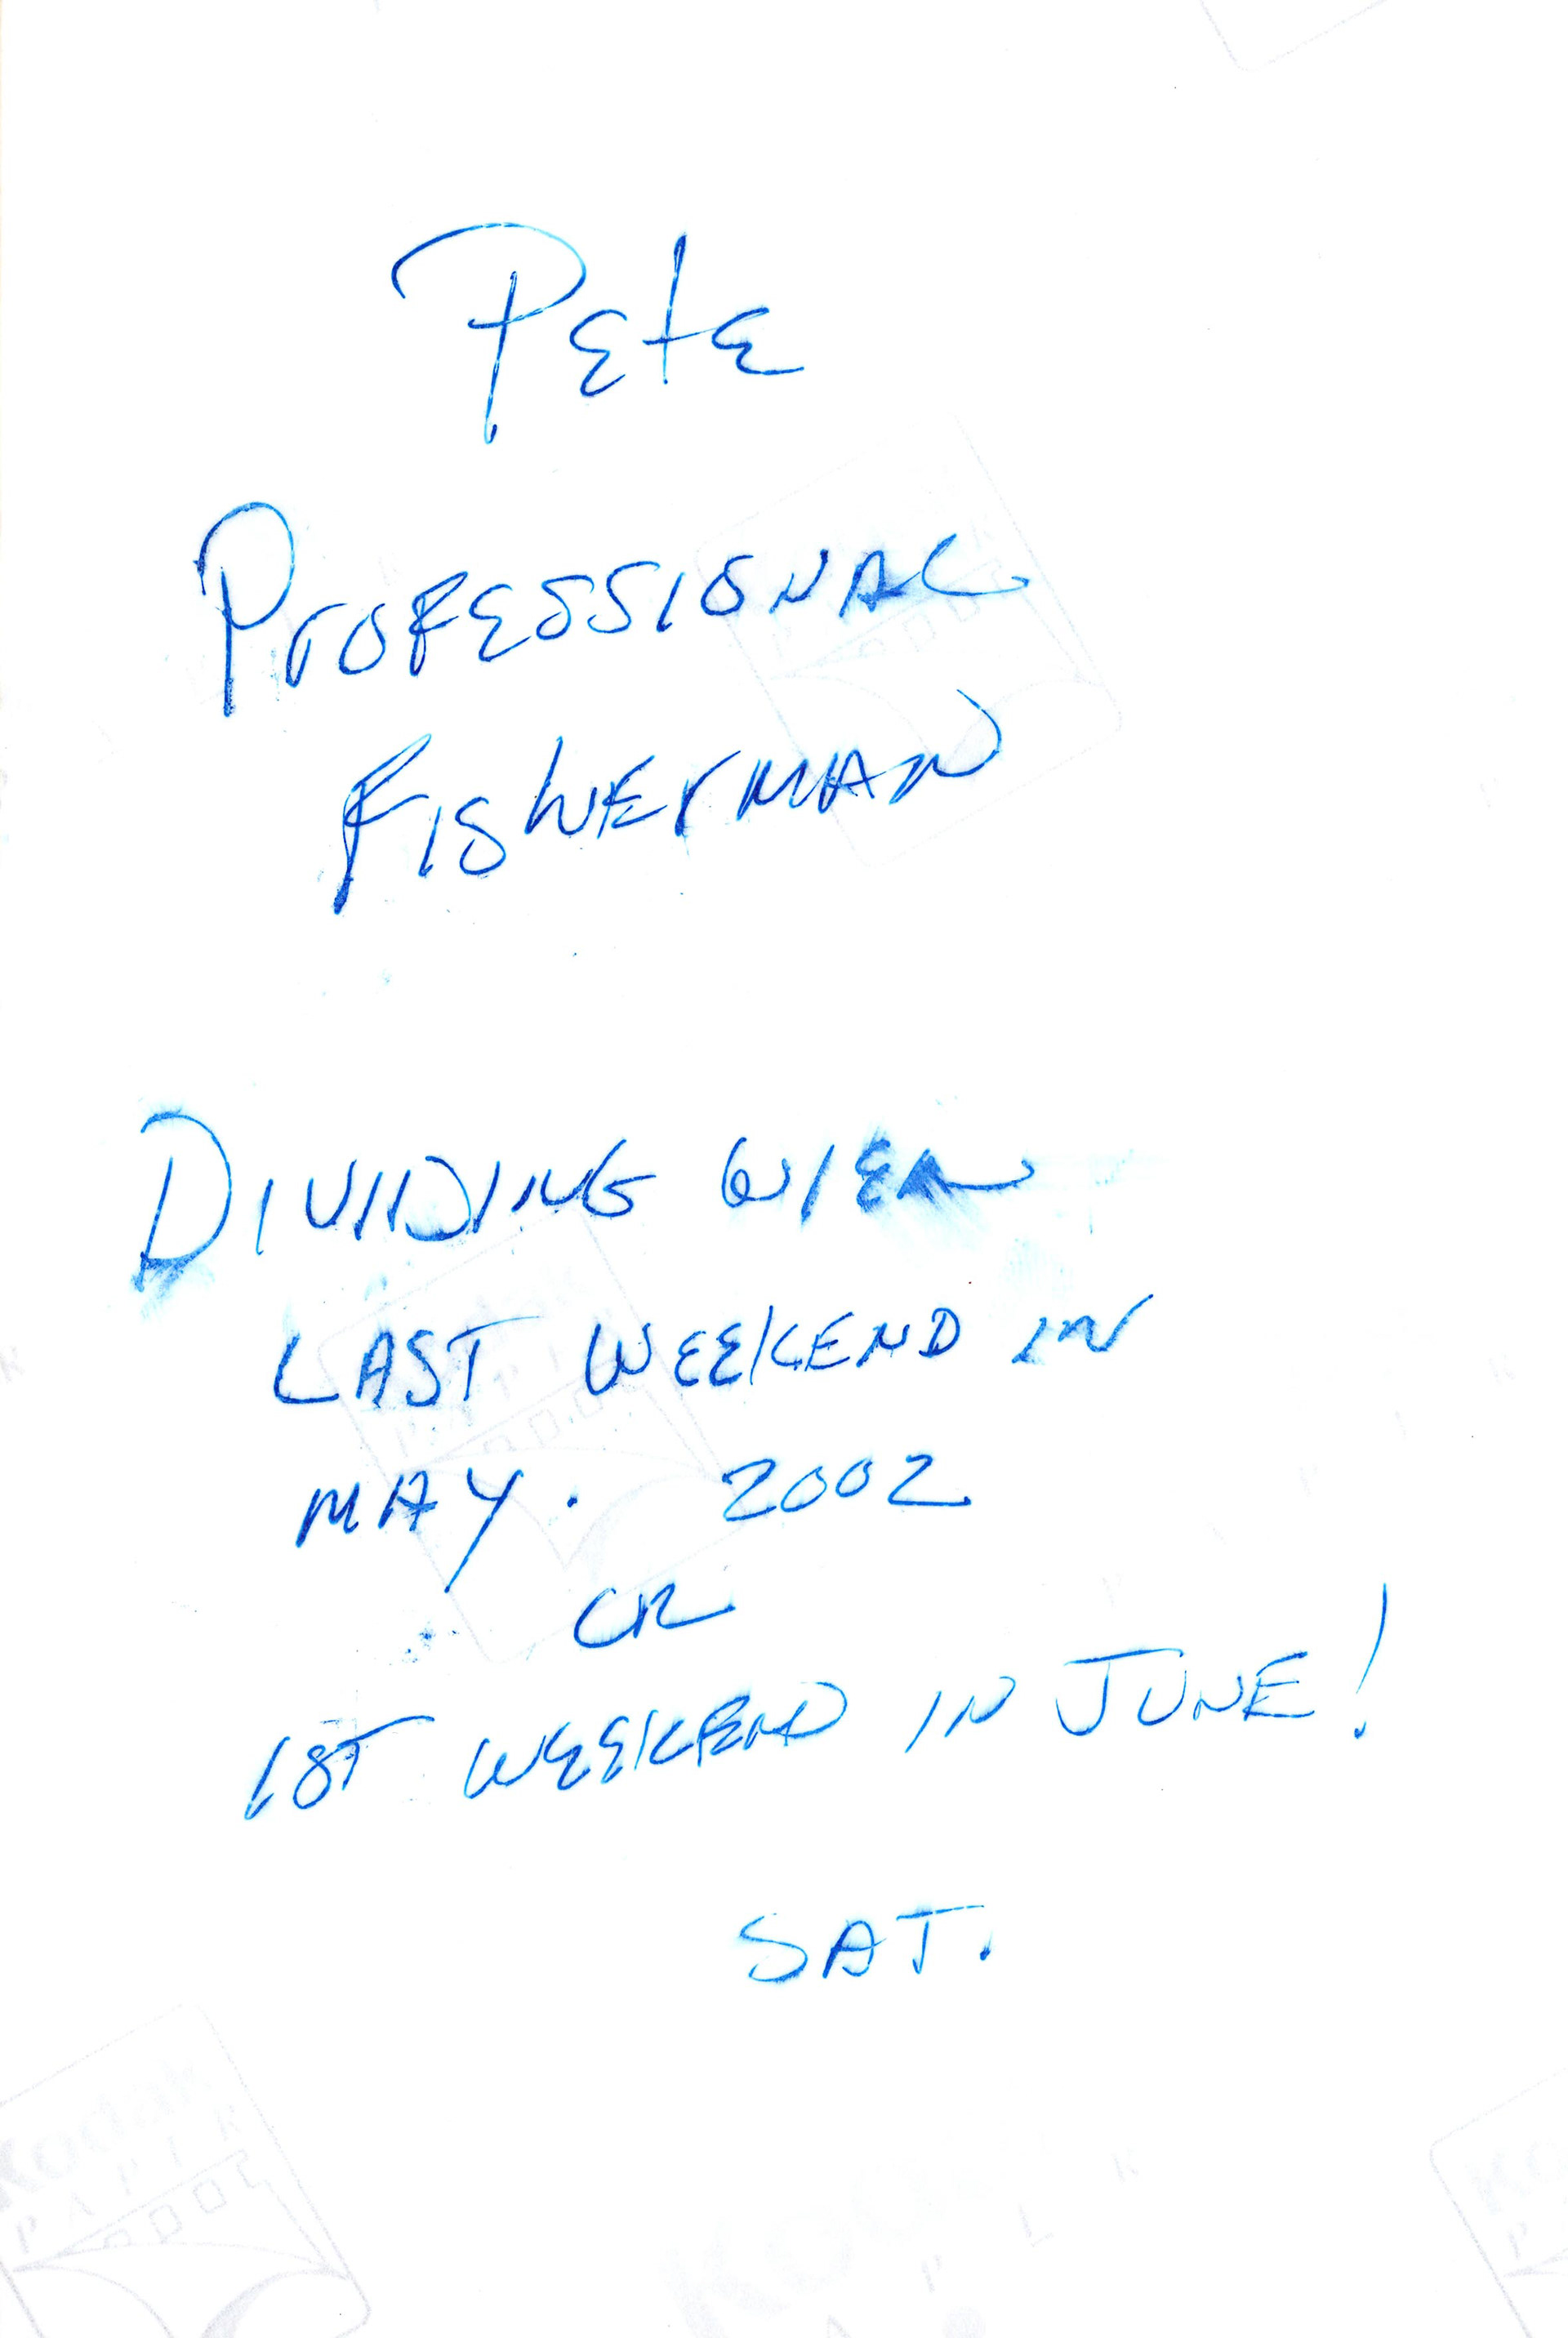 Pete
PROFESSIONAL
FISHERMAN
DIVIDING WIER
LAST WEEKEND IN
MAY. 2002
OR
1ST WEEKEND IN JUNE!
SAT.
Kodak
PAPIER
Kodak